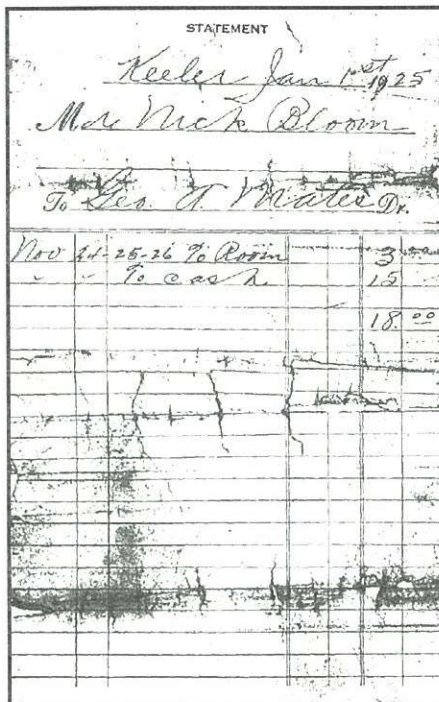 STATEMENT
Keeler Jan 1st 1925
Mr Nick Bloom
To Geo A Mates Dr.
Nov 24-25-26 To Room 3 00
" " To cash 15
18 00